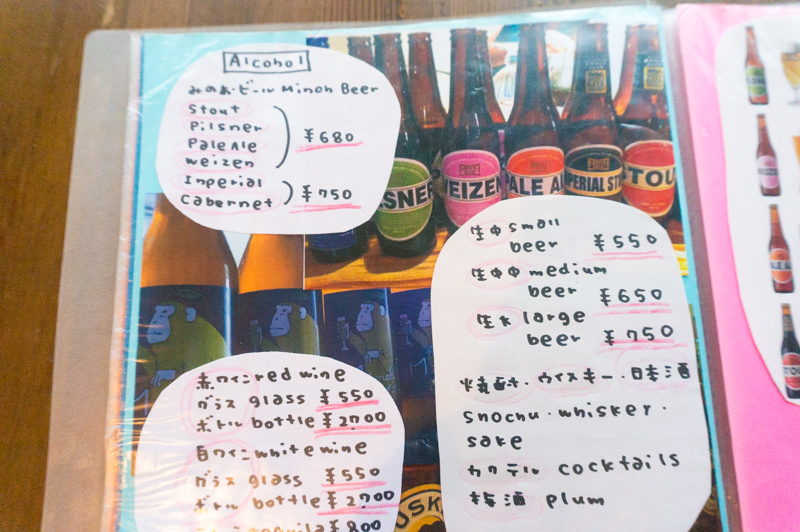 Alcohol
みのおビール Minoh Beer
Stout
Pilsner
Pale Ale
weizen
¥680
Imperial
Cabernet
¥750
赤ワイン red wine
グラス glass ¥550
ボトル bottle ¥2700
白ワイン white wine
グラス glass ¥550
ボトル bottle ¥2700
¥800
生中 small
beer ¥550
生中 medium
beer ¥650
生大 large
beer ¥750
焼酎・ウイスキー・日本酒
snochu・whiskey・
sake
カクテル cocktails
梅酒 plum
LSNER
WEIZEN
PALE AL
MPERIAL ST
STOU